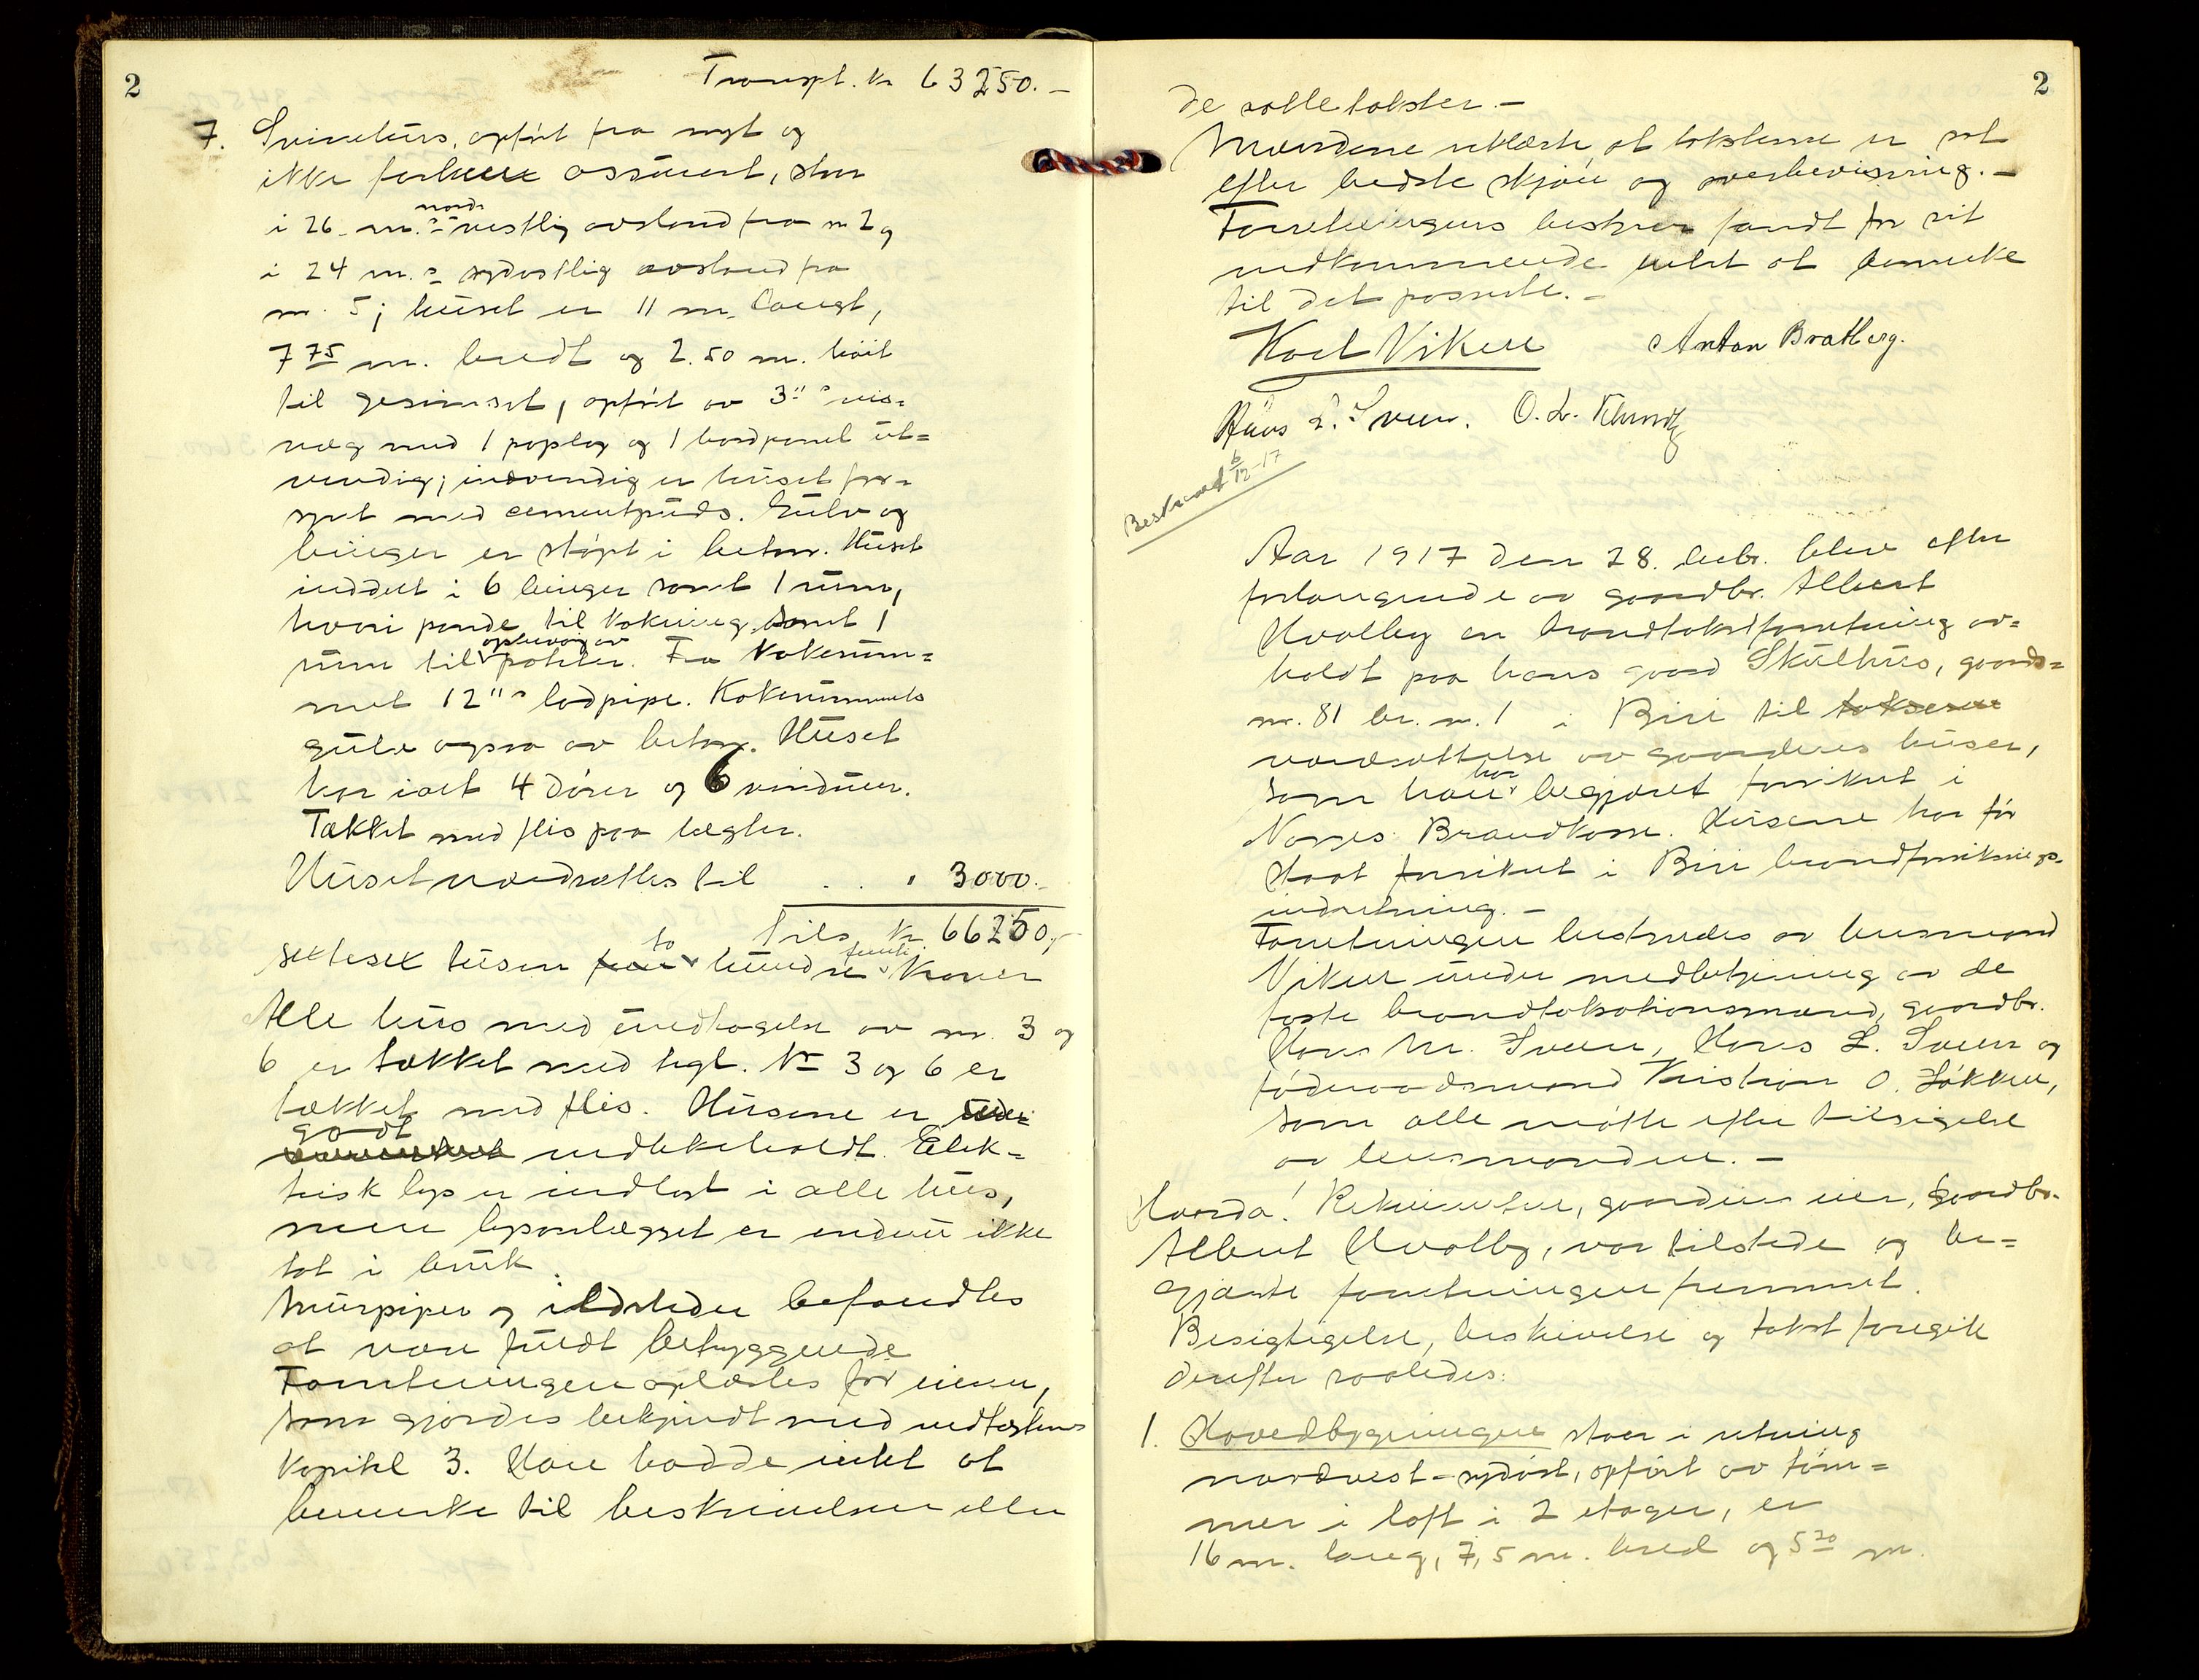 2
Transpt. kr 63250.-
7. Svinehus, opført fra nyt og
ikke forhen assurert, staar
i 26 m.s nordvestlig avstand fra nr 2 og
i 24 m.s sydostlig avstand fra
nr. 5; huset er 11 m. langt,
7 75 m. bredt og 2.50 m. høit
til gesimset, opført av 3"s reis-
væg med 1 paplag og 1 bordpanel ut-
vendig; indvendig er huset for-
synt med cementpuds. Gulv og
binger er støpt i beton. Huset
inddelt i 6 binger samt 1 rum,
hvori pande til kokning, samt 1
rum til opbevaring av poteter. Fra kokerum-
met 12"s lodpipe. Kokerummets
gulv ogsaa av beton. Huset
har ialt 4 dører og 6 vinduer.
Tækket med flis paa lægter.
Huset værdsættes til . . " 3000.-
Tils. kr 66250,-
sektisex tusen to hundre femti kroner
Alle hus med undtagelse av nr. 3 og
6 er tækket med tegl. Nr 3 og 6 er
tækket med flis. Husene er
godt vedlikeholdt. Elek-
trisk lys er indlagt i alle hus,
men lysanlægget er endnu ikke
tat i bruk.
Murpiper og ildsteder befandtes
at være fuldt betryggende
Forretningen oplæstes for eieren,
som gjordes bekjendt med vedtægtens
kapitel 3. Han hadde intet at
bemerke til beskrivelsen eller
2
de satte takster.-
Mændene erklærte, at takstene er sat
efter bedste skjøn og overbevisning.-
Forretningens bestyrer fandt for sit
vedkommende intet at bemerke
til det passerte.-
Karl Viken Anton Bratberg.
Hans L. Sveen. O. L.
Beskrevet 6/12-17
Aar 1917 den 28. febr. blev efter
forlangende av gaardbr. Albert
Hvalby en brandtakstforretning av-
holdt paa hans gaard Skulhus, gaards-
nr. 81 br. nr. 1 i Biri til taksene
værdsættelse av gaardens huser,
som han har begjæret forsikret i
Norges Brandkasse. Husene har før
staat forsikret i Biri brandforsiknings-
indretning.-
Forretningen bestyredes av lensmand
Viken under medbetjening av de
faste brandtakstationsmænd, gaardbr.
Hans M. Sveen, Hans L. Sveen og
føderaadsmand Kristian O. Løkken,
som alle møtte efter tilsigelse
av lensmanden.-
Hvorda! Rekvirenten, gaardens eier, gaardbr.
Albert Hvalby, var tilstede og be-
gjærte forretningen fremmet.
Besigtigelse, beskrivelse og takst foregik
derefter saaledes:
1. Hovedbygningen staar i retning
nordvest-sydøst, opført av tøm-
mer i loft i 2 etager, er
16 m. lang, 7,5 m. bred og 5 20 m.